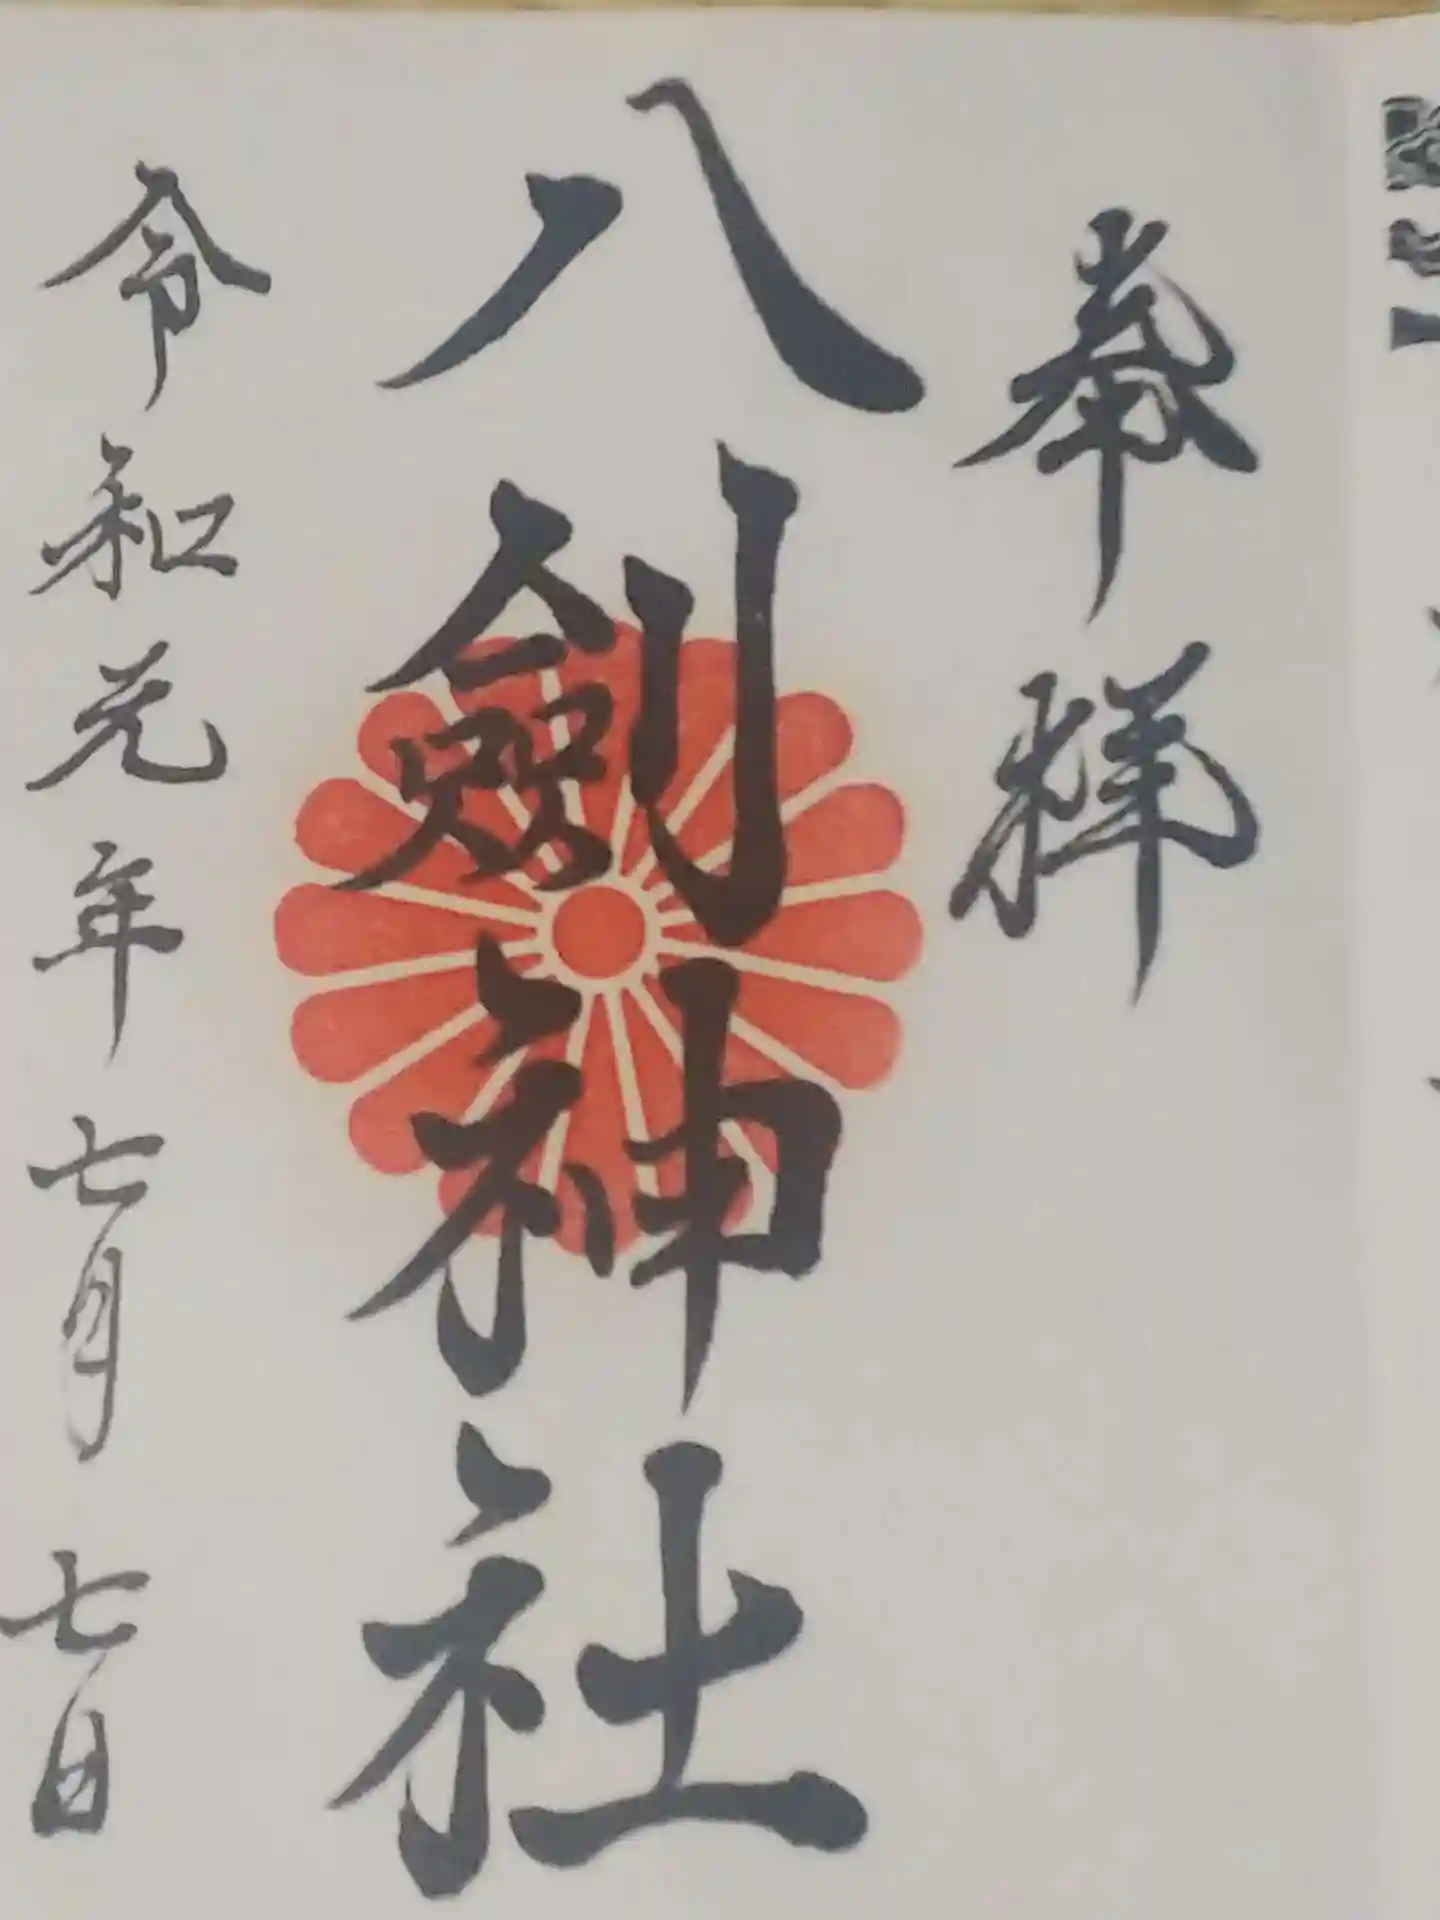 奉拝
八剱神社
令和元年七月七日